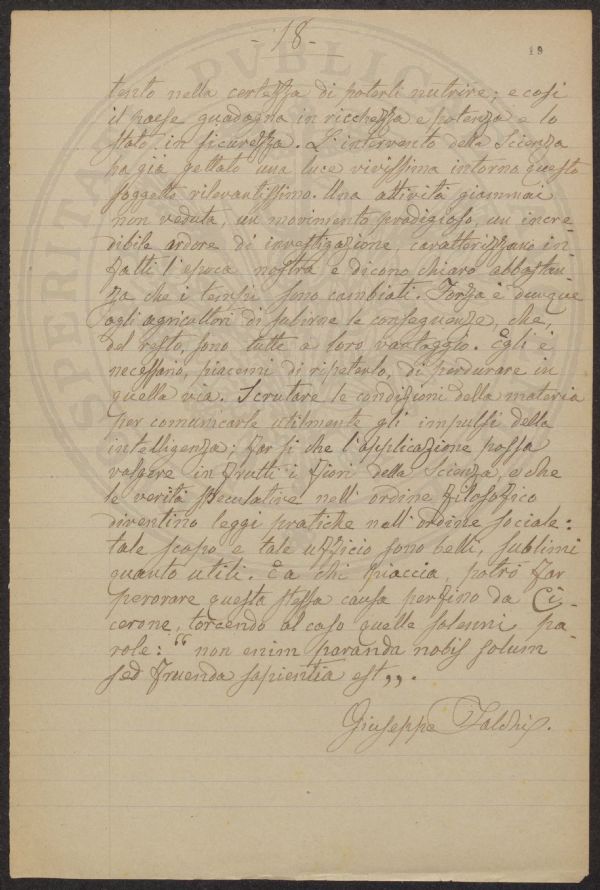 - 18 -
19
tento nella certezza di poterli nutrire; e così
il paese guadagna in ricchezza e potenza e lo
stato in sicurezza. L'intervento della Scienza
ha già gettato una luce vivissima intorno questo
soggetto rilevantissimo. Una attività giammai
non veduta, un movimento prodigioso, un incre-
dibile ardore di investigazione, caratterizzano in-
fatti l'epoca nostra e dicono chiaro abbastan-
za che i tempi sono cambiati. Forza è dunque
agli agricoltori di subirne le conseguenze, che,
del resto, sono tutte a loro vantaggio. Egli è
necessario, piacemi di ripeterlo, di perdurare in
quella via. Scrutare le condizioni della materia
per comunicarle utilmente gli impulsi della
intelligenza; far sì che l'applicazione possa
volgere in frutti i fiori della Scienza, e che
le verità speculative nell'ordine filosofico
diventino leggi pratiche nell'ordine sociale:
tale scopo e tale ufficio sono belli, sublimi
quanto utili. E a chi piaccia, potrò far
perorare questa stessa causa perfino da Ci-
cerone, torcendo al caso quelle solenni pa-
role: “ non enim paranda nobis solum
sed fruenda sapientia est „.
Giuseppe
SPERITAS PUBLICA